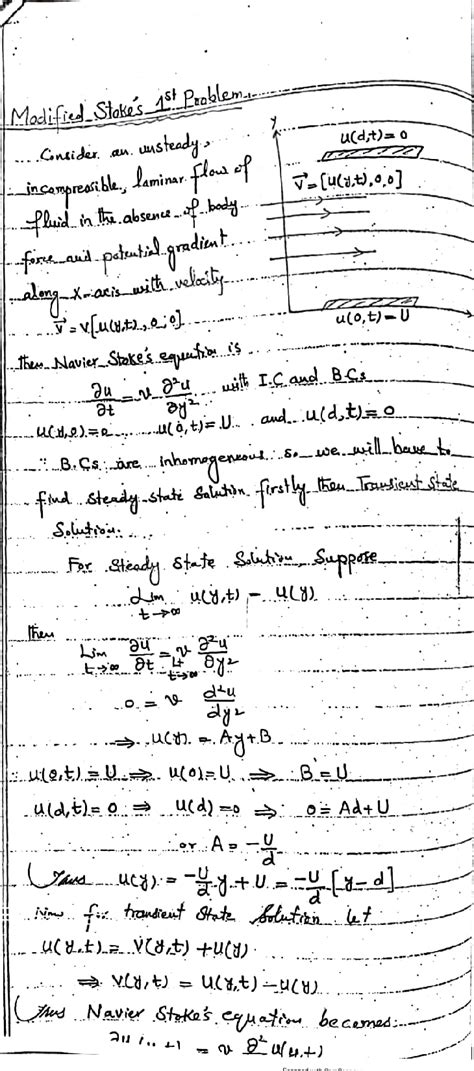 Modified Stoke's 1st Problem.
Consider an unsteady,
incompressible, laminar flow of
fluid in the absence of body
force and potential gradient
along x-axis with velocity
V⃗ = V[u(y,t), 0, 0]
y
u(d,t) = 0
V⃗ = [u(y,t), 0, 0]
u(0,t) = U
then Navier Stoke's equation is
∂u/∂t = ν ∂²u/∂y² with I.C and B.Cs
u(y,0) = 0 u(0,t) = U and u(d,t) = 0
∵ B.Cs are inhomogeneous so we will have to
find steady state solution firstly then Transient State
Solution.
For Steady State Solution Suppose
Lim t→∞ u(y,t) = u(y)
then
Lim t→∞ ∂u/∂t = ν Lt t→∞ ∂²u/∂y²
0 = ν d²u/dy²
⇒ u(y) = Ay + B
∵ u(0,t) = U ⇒ u(0) = U ⇒ B = U
u(d,t) = 0 ⇒ u(d) = 0 ⇒ 0 = Ad + U
or A = -U/d
Thus u(y) = -U/d y + U = -U/d [y - d]
Now for transient state Solution let
u(y,t) = V(y,t) + u(y)
⇒ V(y,t) = u(y,t) - u(y)
Thus Navier Stoke's equation becomes
= ν ∂² u(y,t)